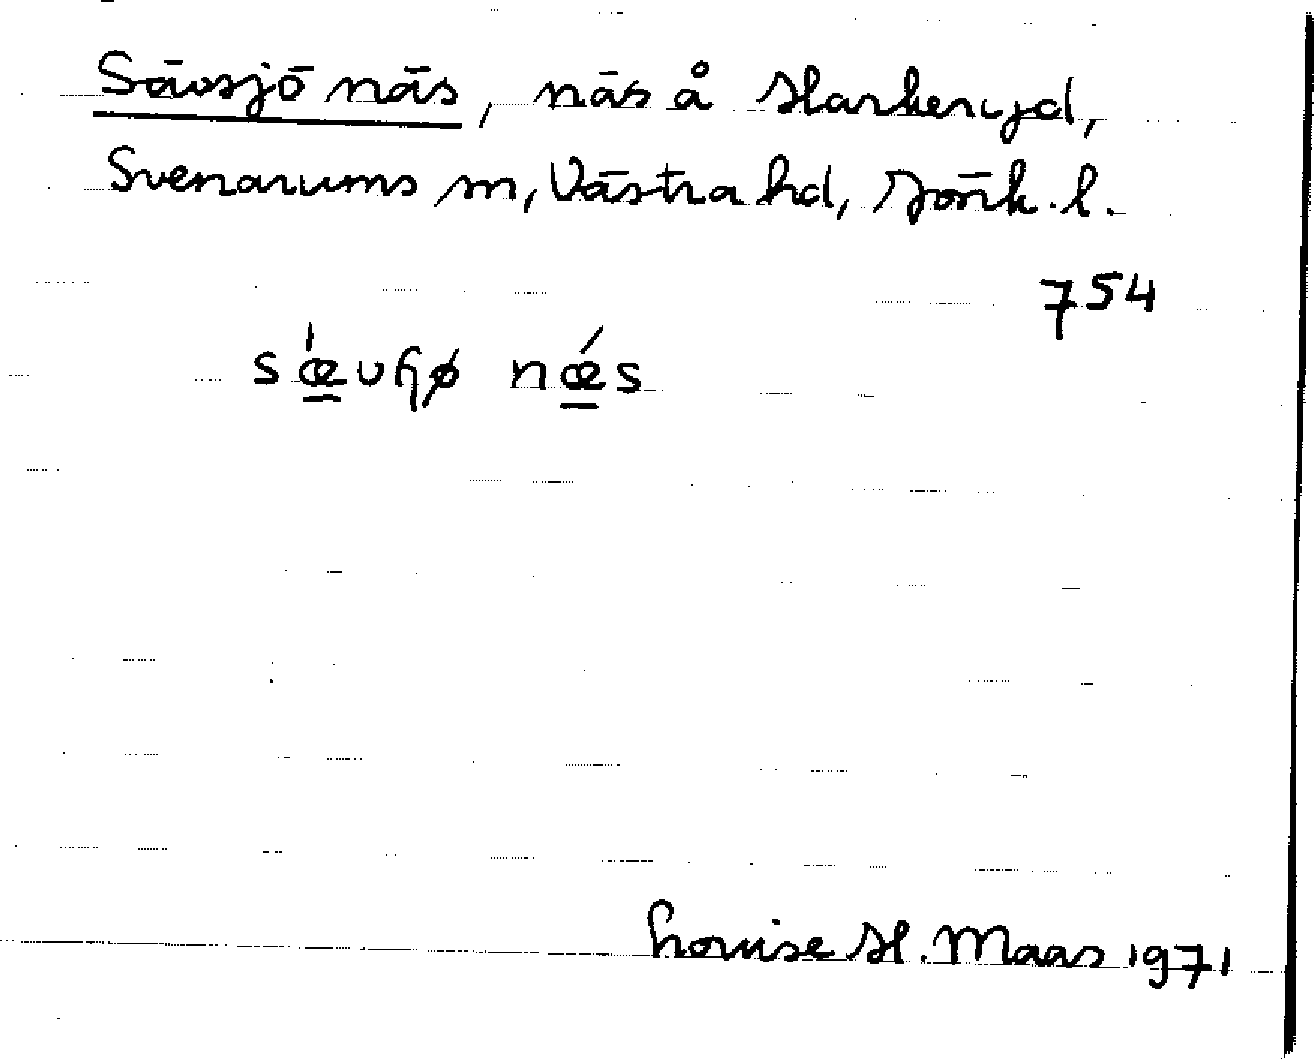 Sävsjö näs, näs å Harkeryd,
Svenarums sn, Västra hd, Jönk. l.
754
sǽvɧø nǽs
Louise H. Maas 1971